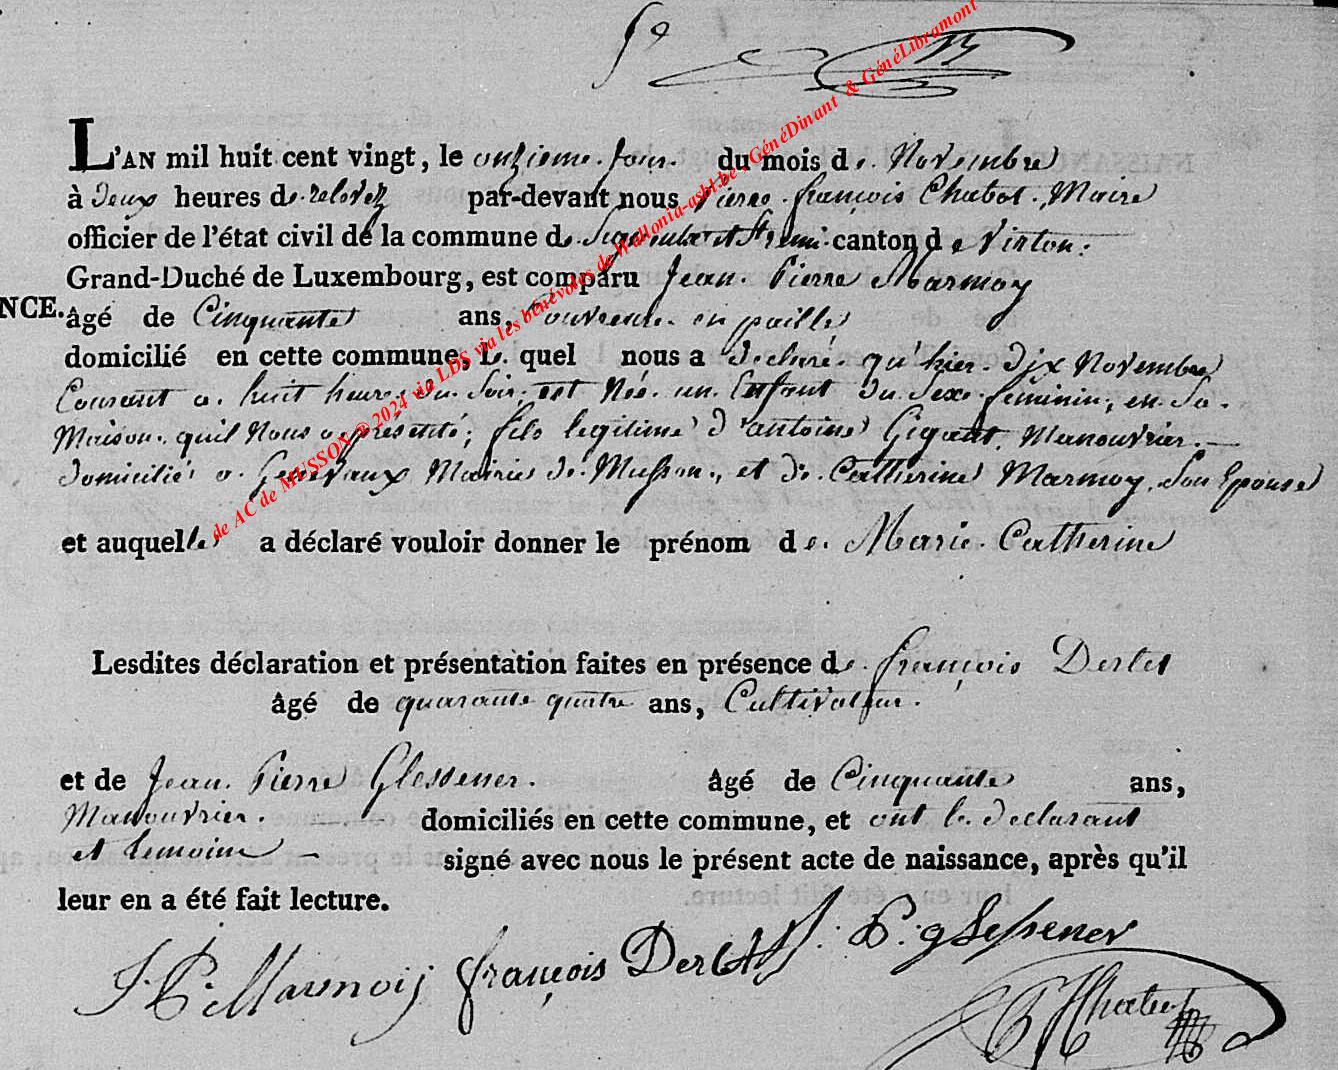 L'AN mil huit cent vingt, le onzieme Jour du mois de Novembre
à deux heures de relevez par-devant nous Pierre françois Chabot, Maire
officier de l'état civil de la commune de canton de Virton.
Grand-Duché de Luxembourg, est comparu Jean Pierre Marmoy
NCE. âgé de Cinquante ans, Couvreure en paille
domicilié en cette commune, Le quel nous a declaré qu'hier dix Novembre
Courant a huit heure du Soir est Née un Enfant du Sexe féminin, en Sa
Maison, quil Nous a présenté, fils legitime d'antoine Gigant, Manouvrier
domicilié a Mairie de Musson, et de Catherine Marmoy, Son Epouse
et auquelle a déclaré vouloir donner le prénom de Marie Catherine
Lesdites déclaration et présentation faites en présence de françois Derlet
âgé de quarante quatre ans, Cultivateur.
et de Jean Pierre Glessener. âgé de Cinquante ans,
Manouvrier. domiciliés en cette commune, et ont le declarant
et temoins signé avec nous le présent acte de naissance, après qu'il
leur en a été fait lecture.
J. P. Marmoij françois Derlet J. P. glessener
P F Chabot
de AC de MUSSON @ 2024 via LDS via les bénévoles de Wallonia-asbl.be, GénéDinant & GénéLibramont